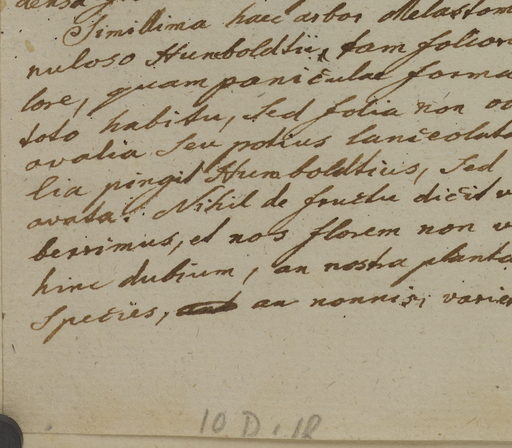 densa
Simillima haec arbor Melastom
nuloso Humboldtii, tam folior
lore, quam paniculae forma
toto habitu, sed folia non ov
ovalia seu potius lanceolata
lia pingit Humboldtius, sed
ovata. Nihil de fructu dicit v
berrimus, et nos florem non v
hinc dubium, an nostra planta
species, an nonnisi varie
10 D. 18